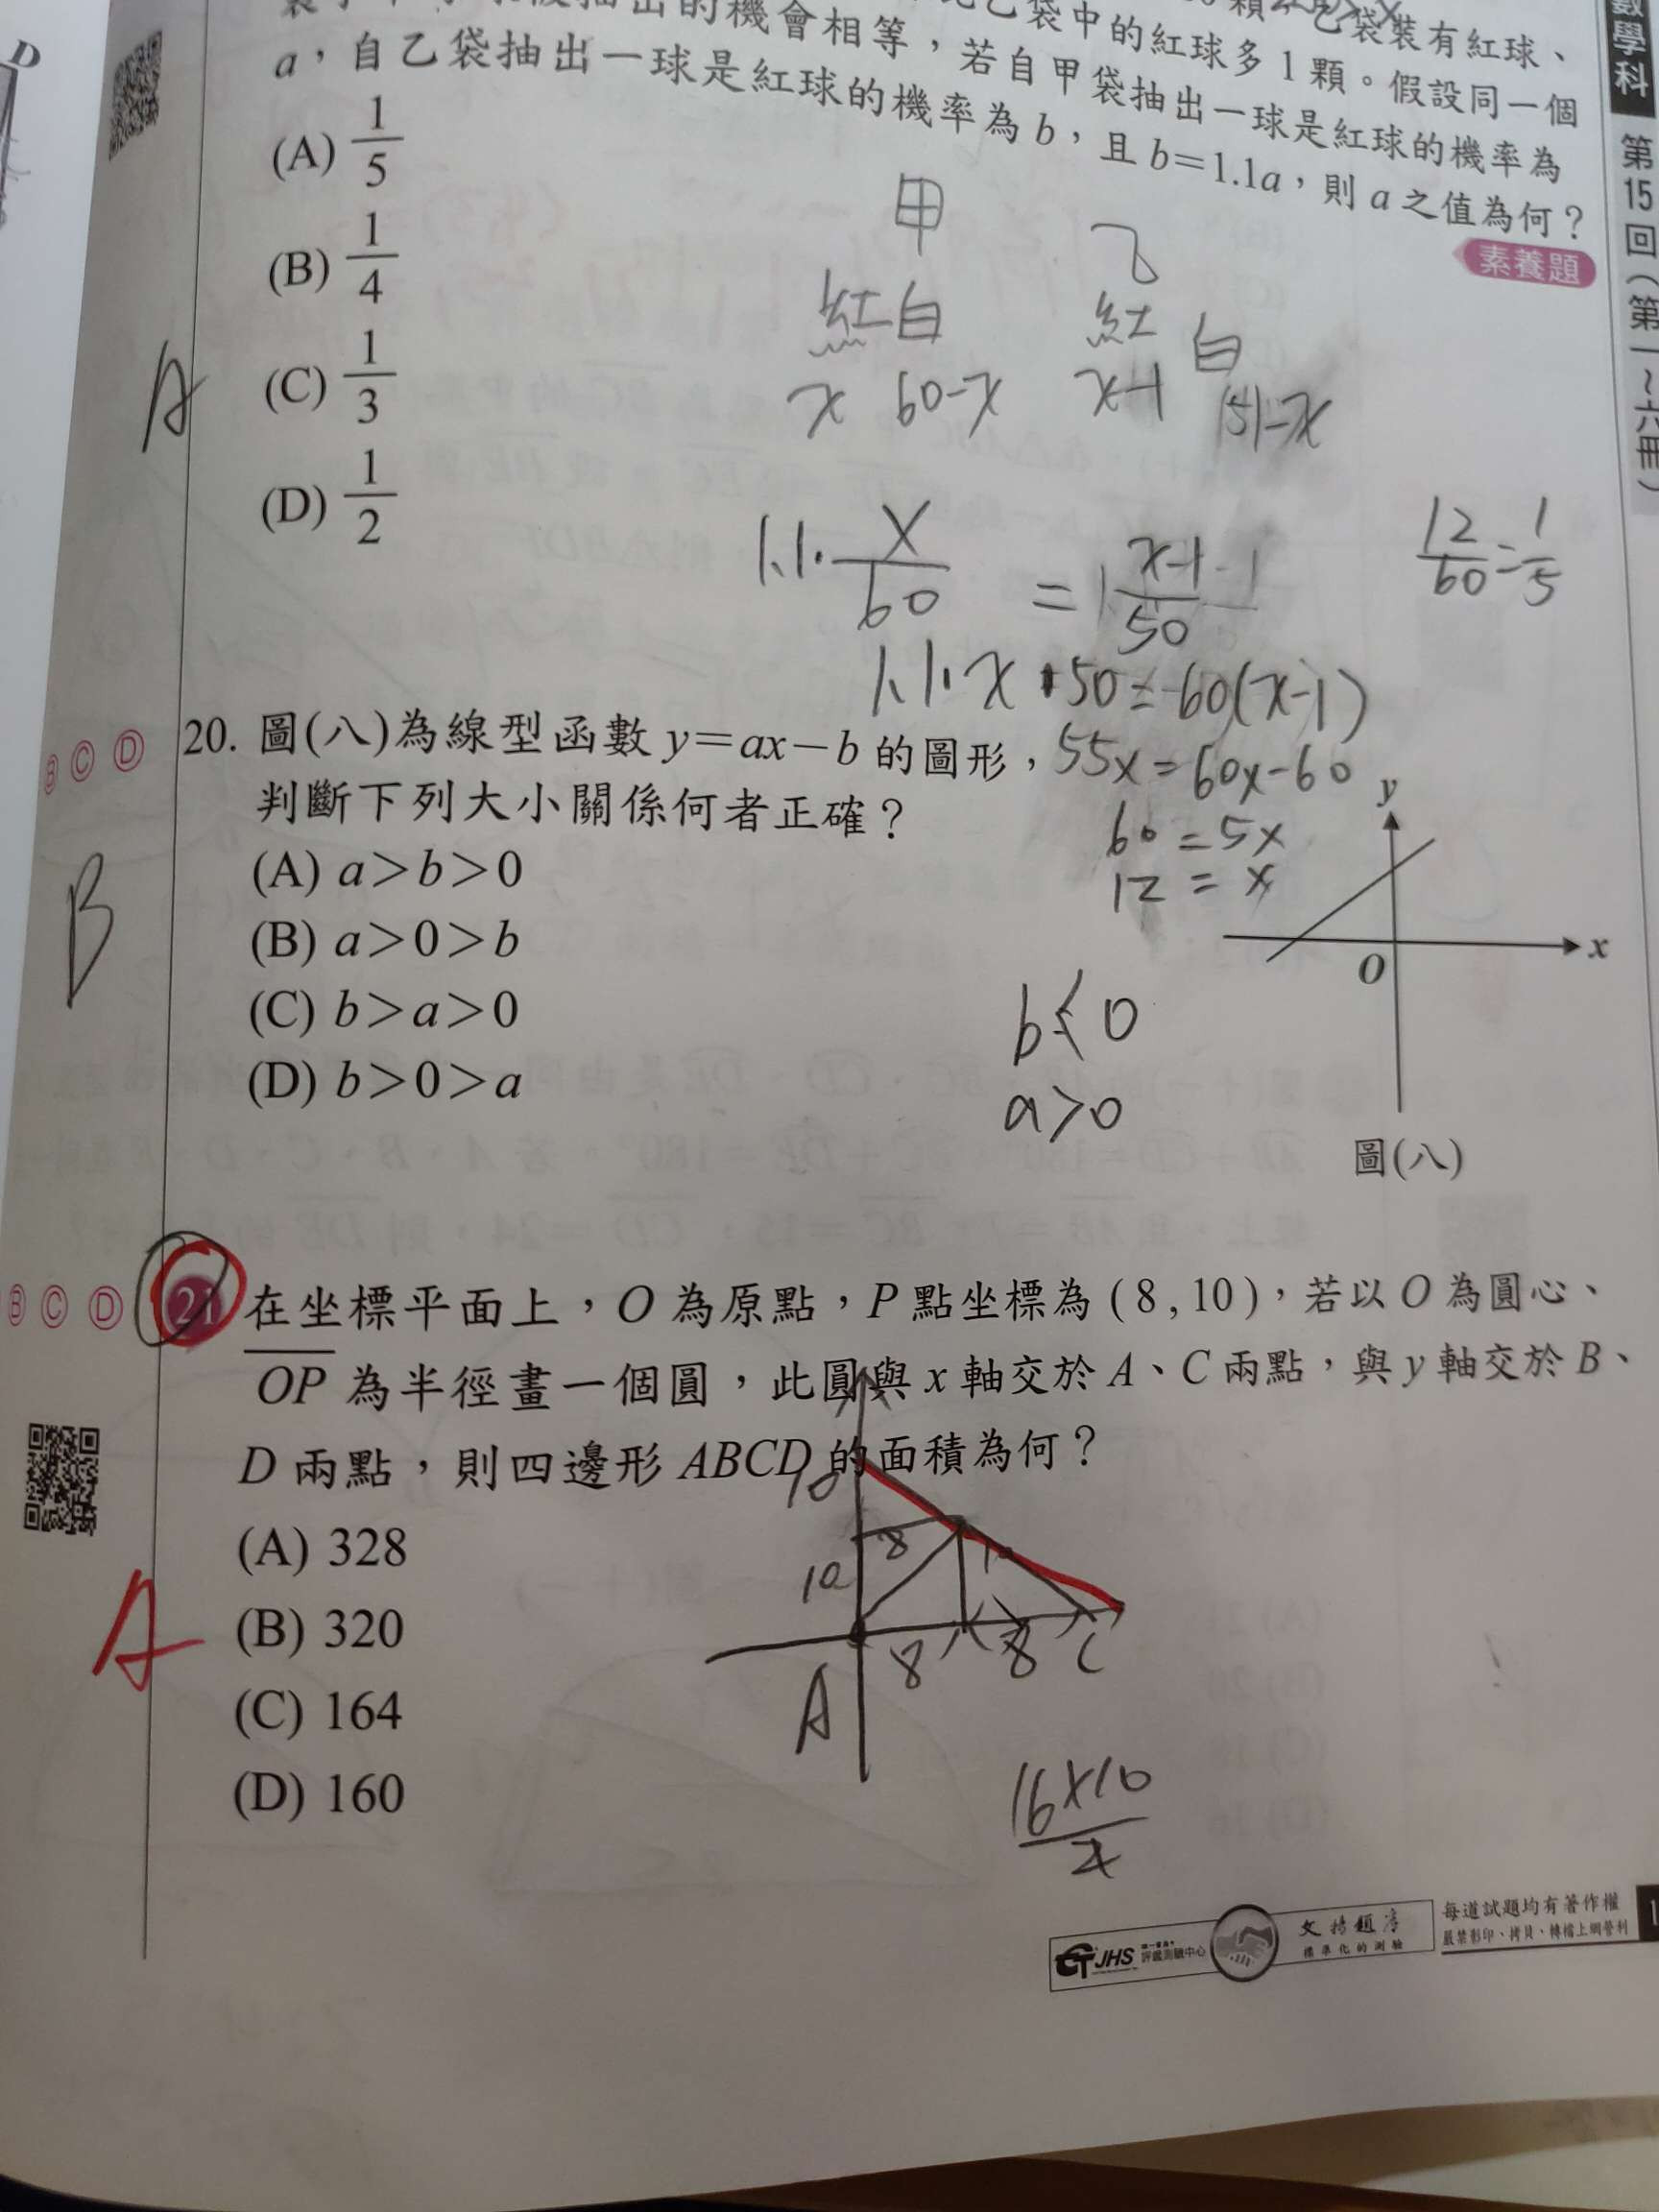 D
數學科 第15回(第一~六冊)
的機會相等,若自甲袋抽出一球是紅球的機率為
袋中的紅球多1顆。假設同一個
乙袋裝有紅球、
a,自乙袋抽出一球是紅球的機率為b,且b=1.1a,則a之值為何?
素養題
(A) 1/5
(B) 1/4
(C) 1/3
(D) 1/2
A
甲 乙
紅 白 紅 白
x 60-x x-1 51-x
1.1·x/60 = x-1/50
12/60=1/5
1.1·x·50=60(x-1)
55x=60x-60
60=5x
12=x
B C D 20. 圖(八)為線型函數y=ax-b的圖形,
判斷下列大小關係何者正確?
(A) a>b>0
(B) a>0>b
(C) b>a>0
(D) b>0>a
B
b<0
a>0
y
x
O
圖(八)
B C D 21 在坐標平面上,O為原點,P點坐標為(8,10),若以O為圓心、
OP為半徑畫一個圓,此圓與x軸交於A、C兩點,與y軸交於B、
D兩點,則四邊形ABCD的面積為何?
(A) 328
(B) 320
(C) 164
(D) 160
A
10
8
10
8 8 C
A
16×10/2
CTJHS 評鑑測驗中心
標準化的測驗
每道試題均有著作權
嚴禁影印、拷貝、轉檔上網營利
1